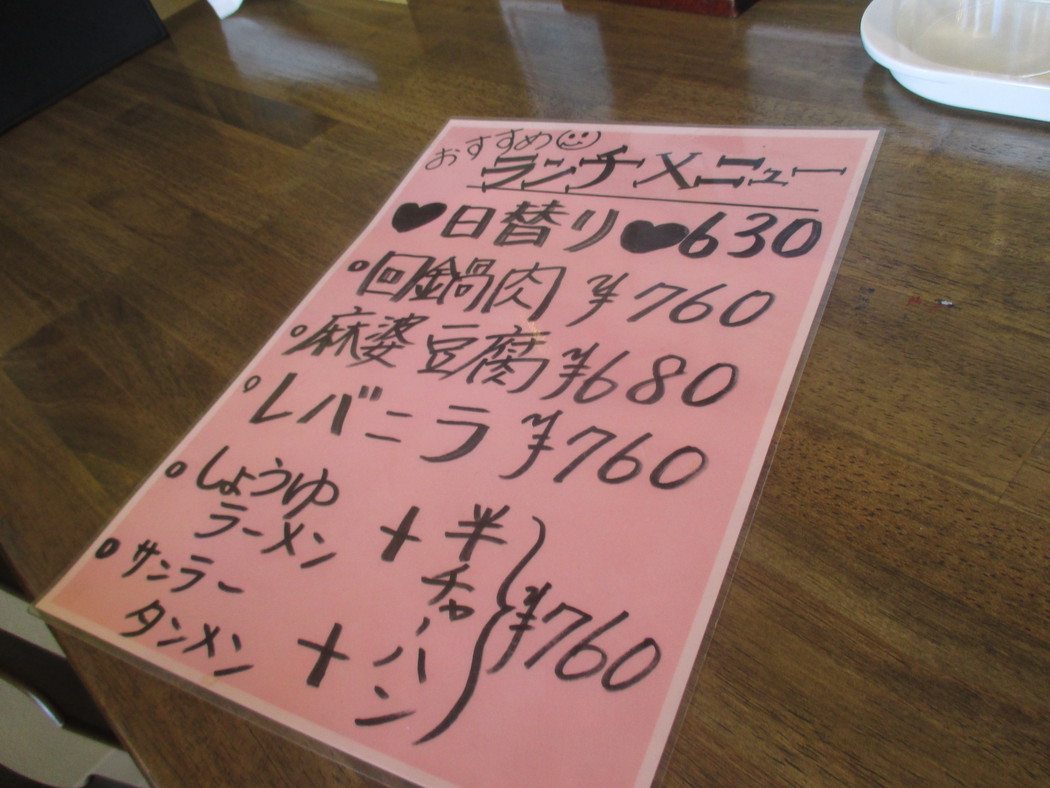 おすすめ
ランチメニュー
♥日替り♥630
○回鍋肉 ¥760
○麻婆豆腐 ¥680
○レバニラ ¥760
○しょうゆ
ラーメン + 半
チャーハン
○サンラー
タンメン +
¥760